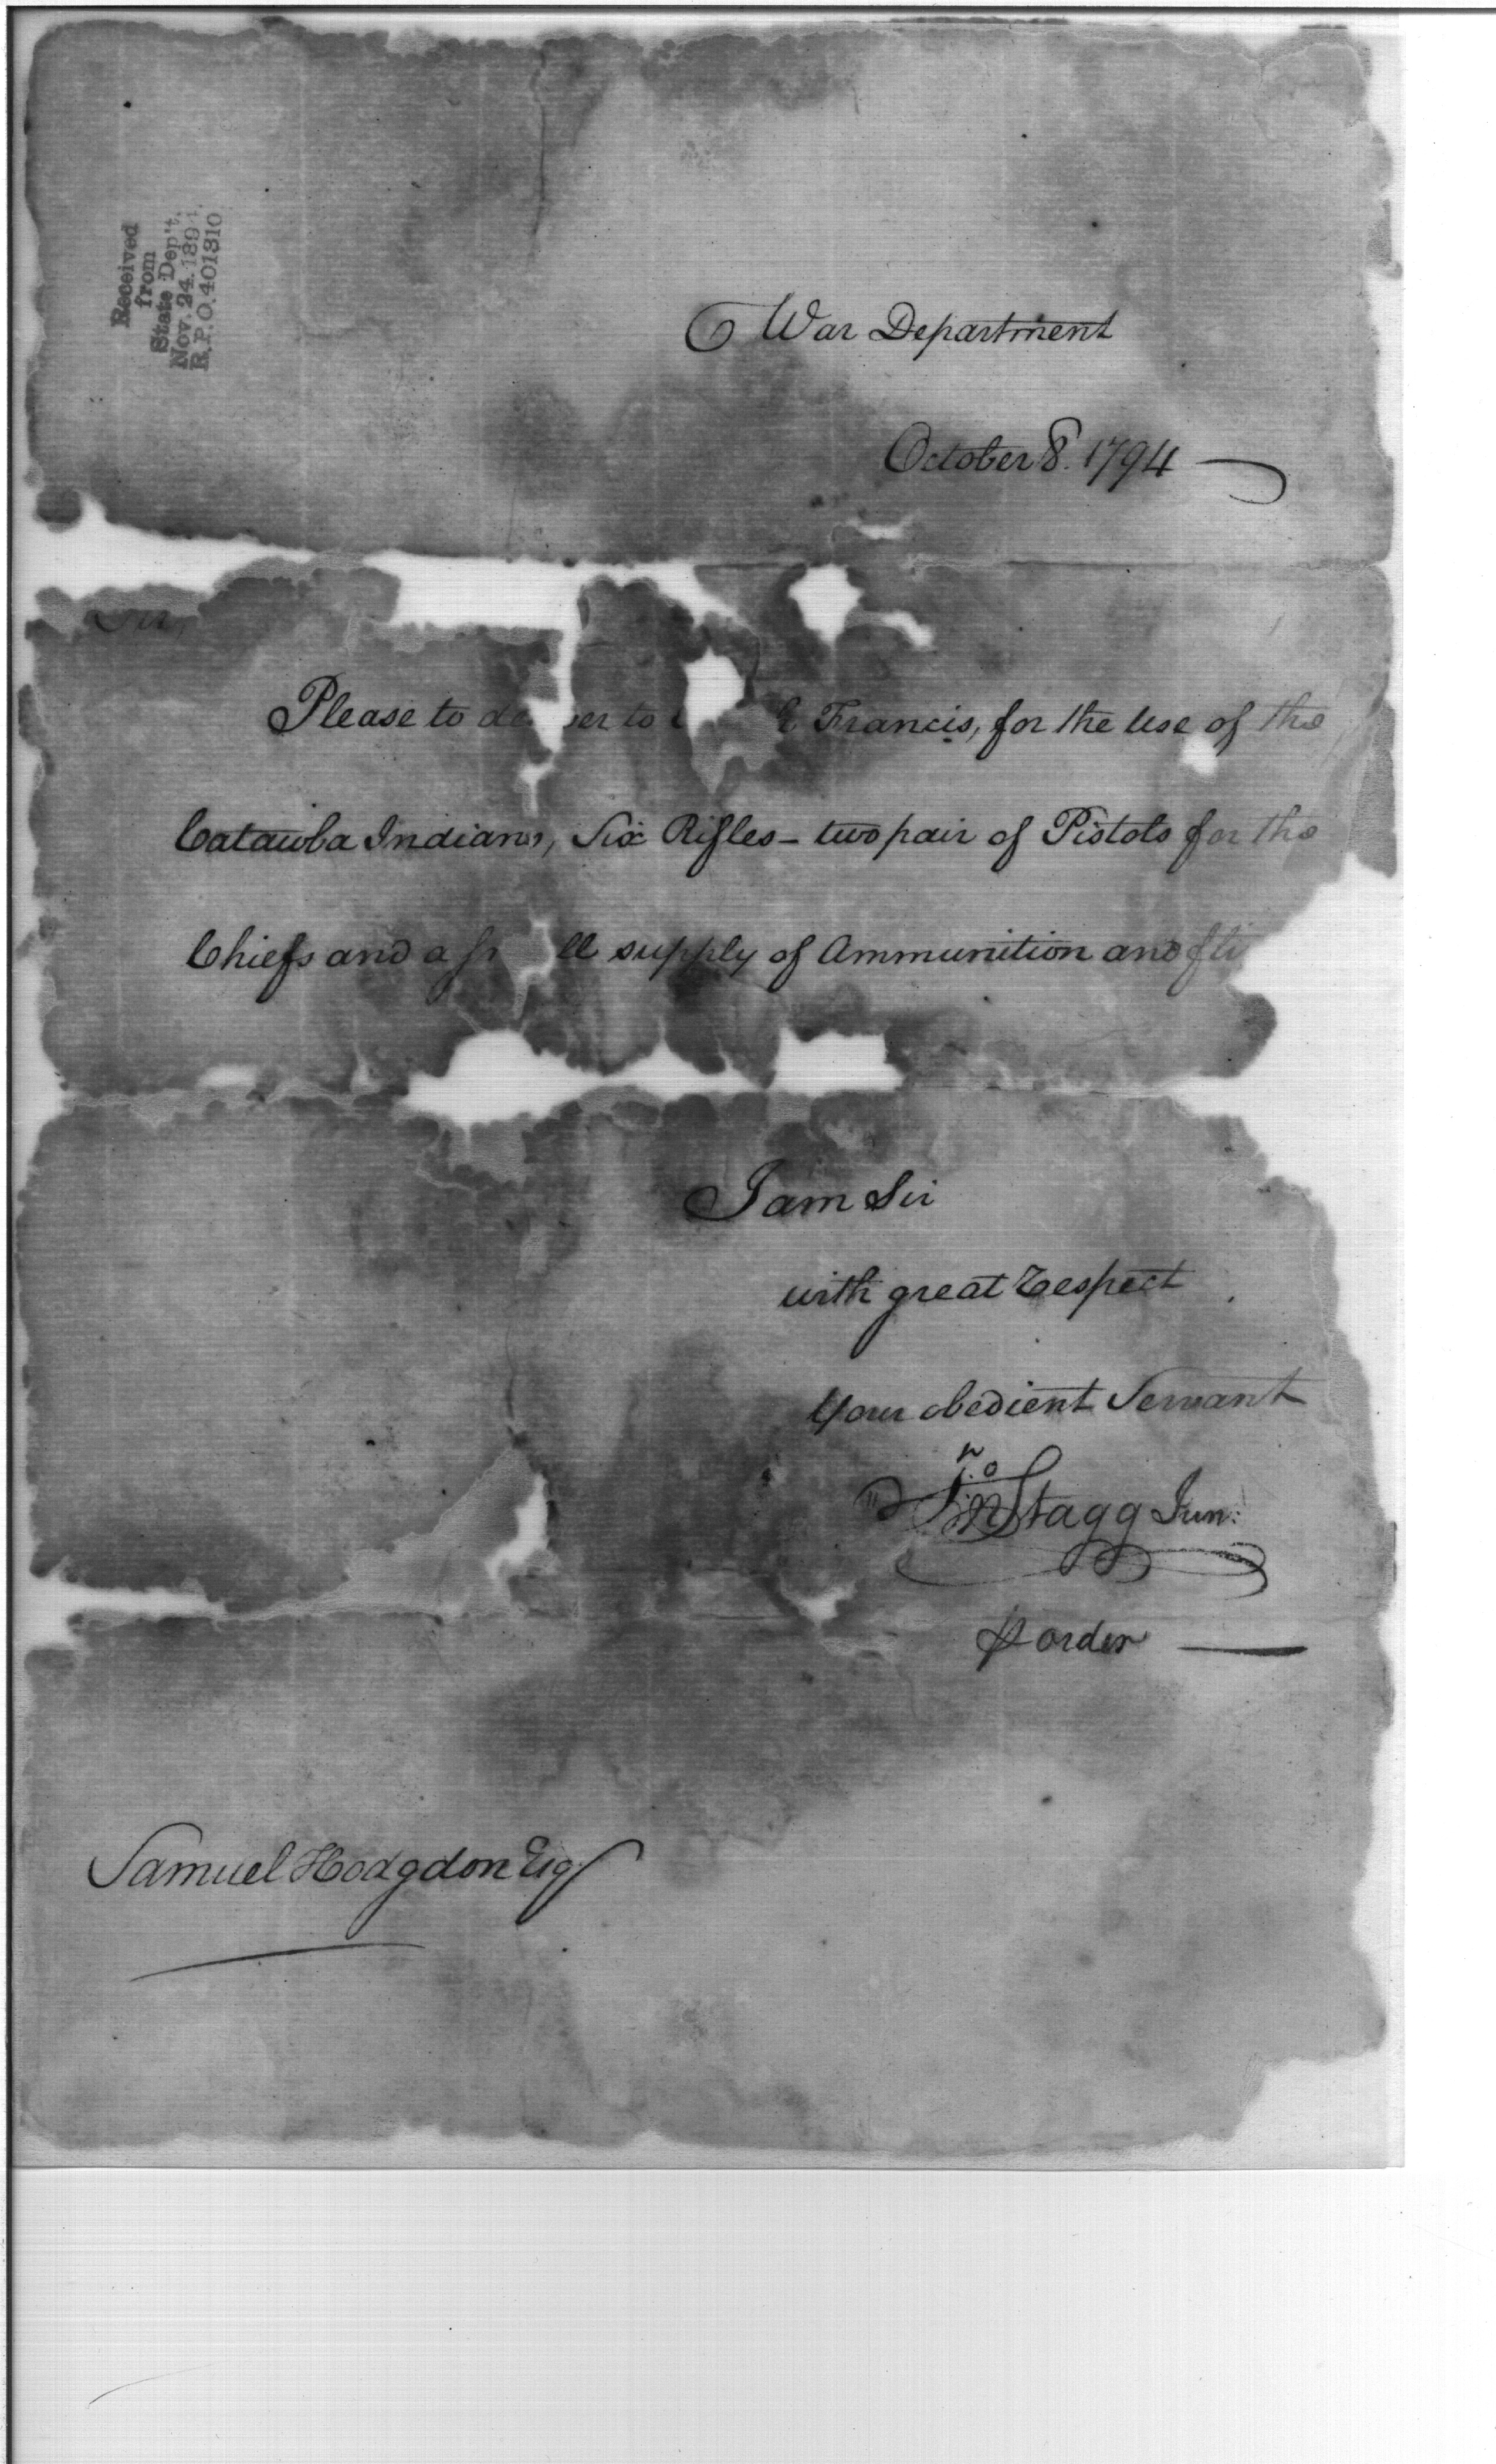 Received
from
State Dep't.
Nov. 24. 1891.
R.P.O. 401310
War Department
October 8. 1794
Sir,
Please to to Francis, for the Use of the
Catawba Indians, Six Rifles - two pair of Pistols for the
Chiefs and a supply of Ammunition and
I am Sir
with great respect
Your obedient Servant
Jno Stagg Jun:
⅌ order
Samuel Hodgdon Esq